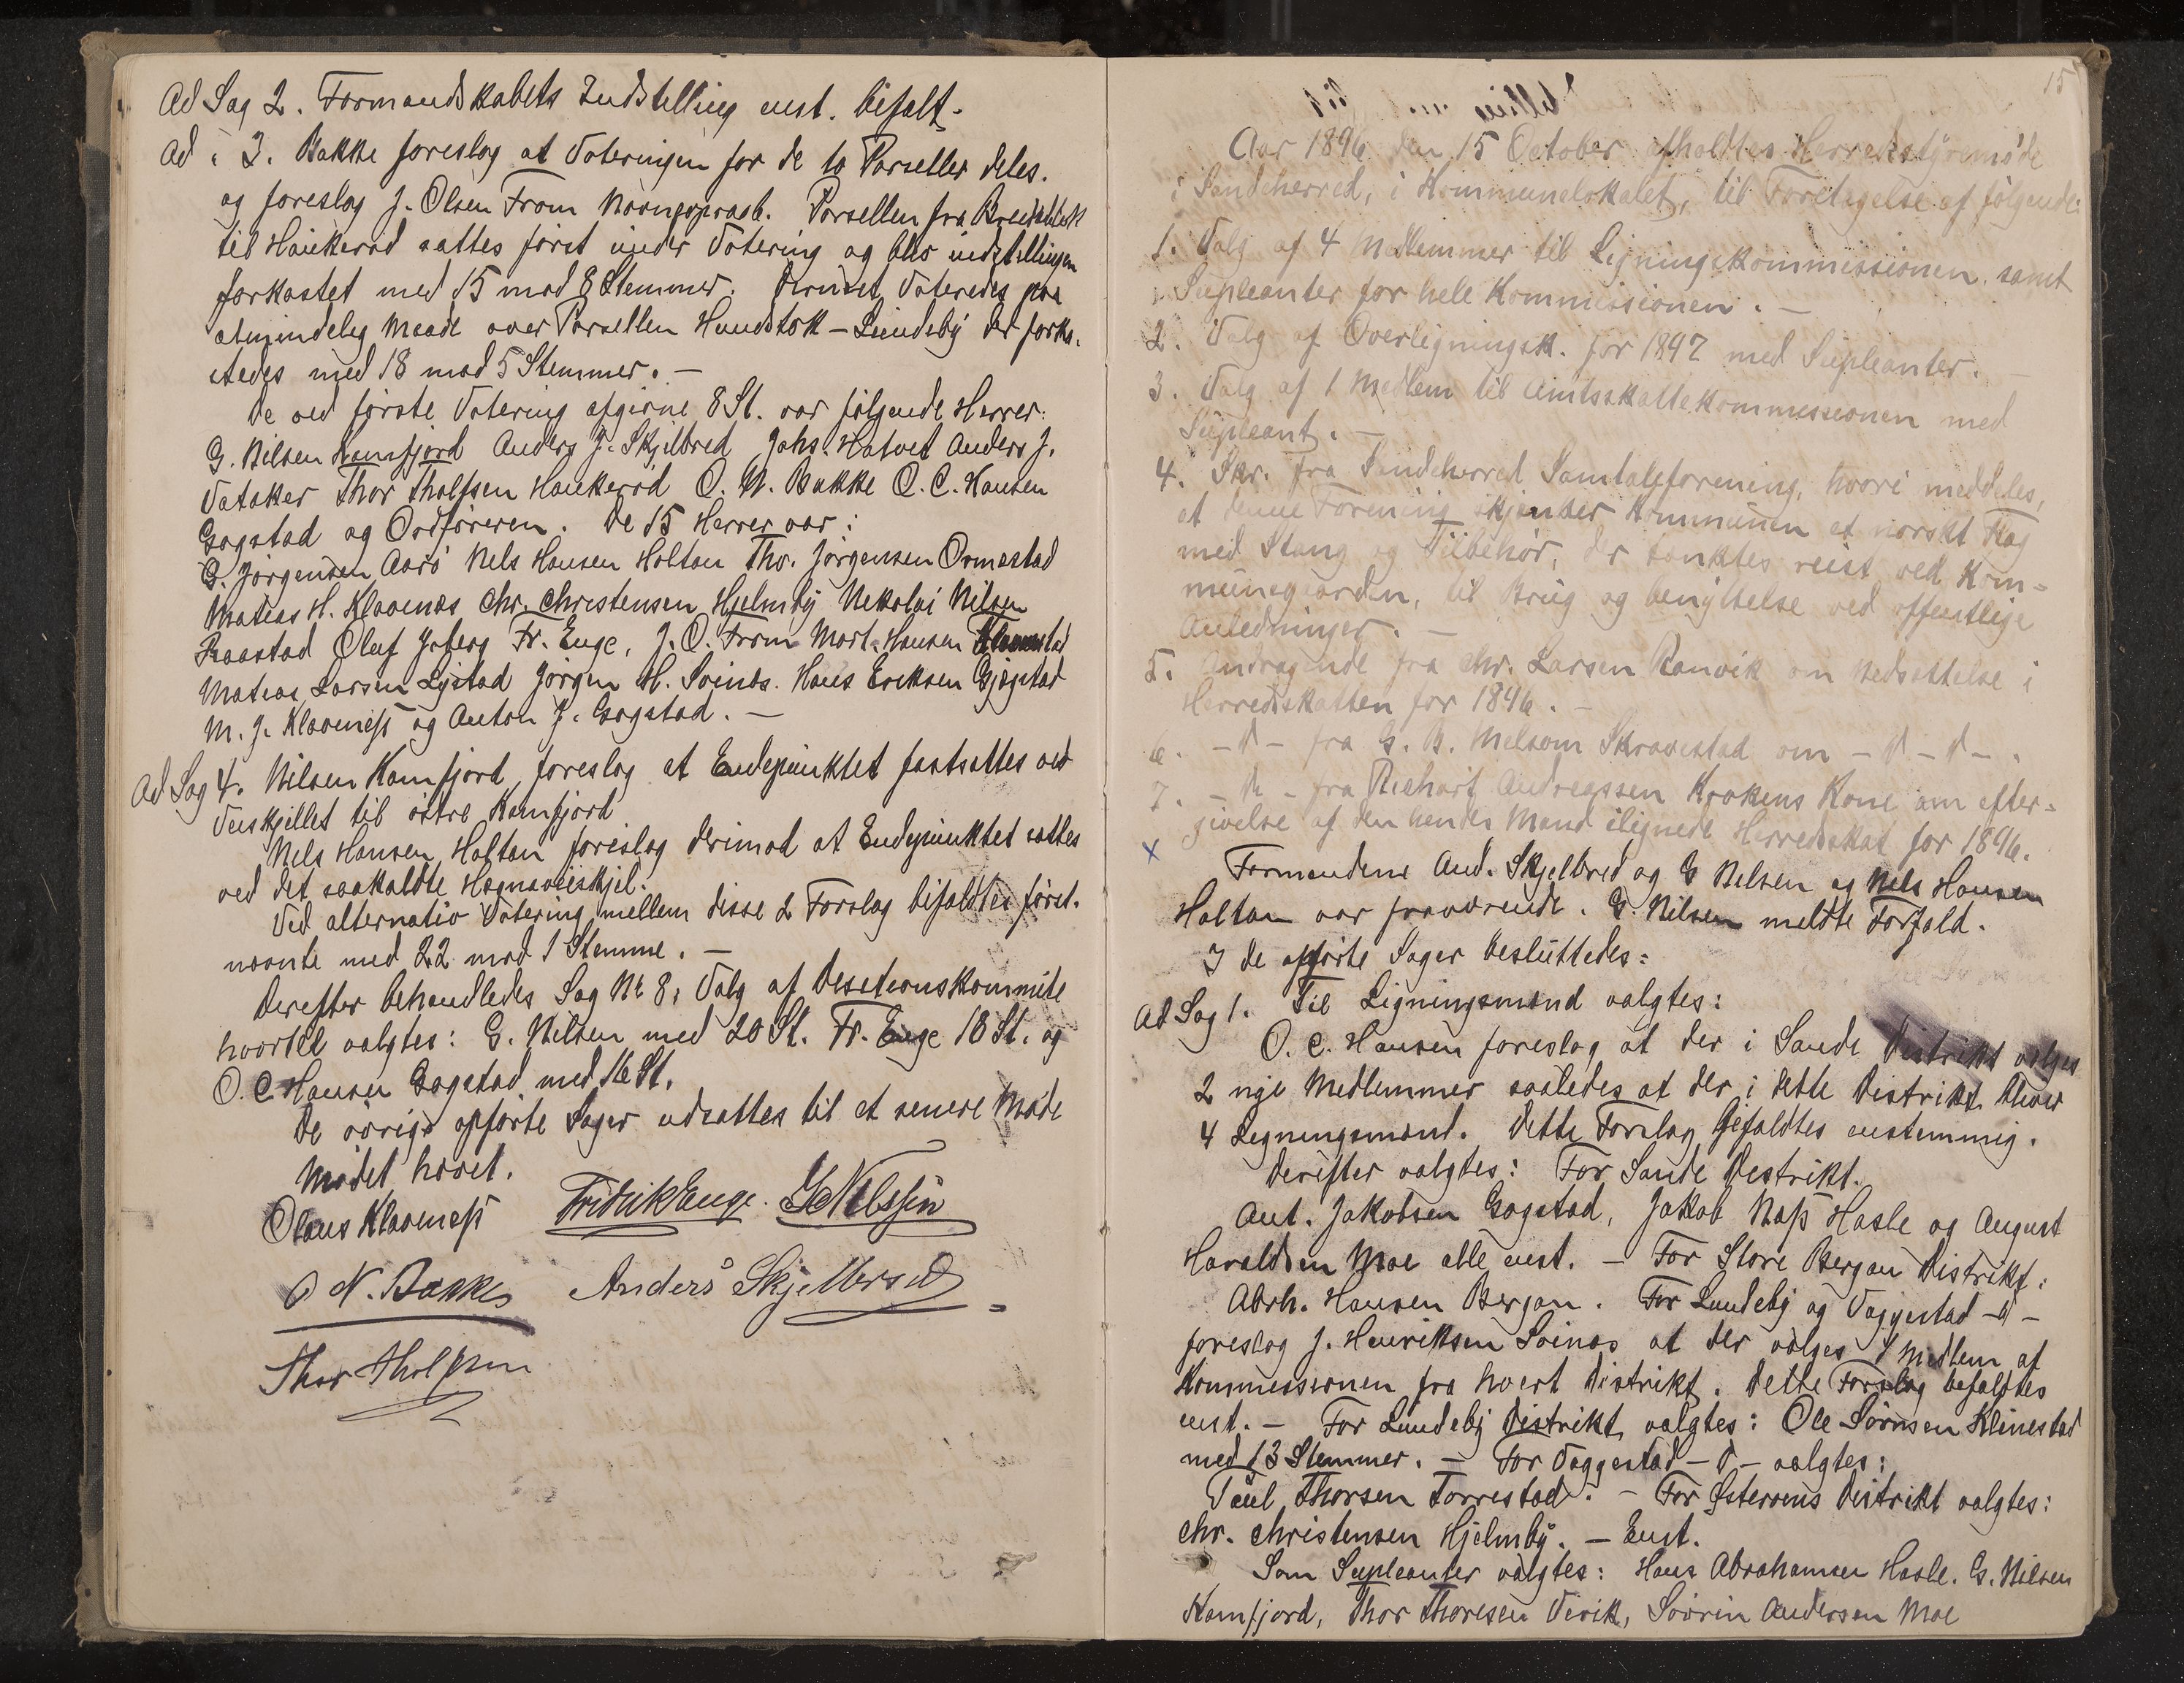 Ad Sag 2. Formandskabets Indstilling enst. bifalt.
Ad " 3. Bakke foreslog at Voteringen for de to Parseller deles.
og foreslog J. Olsen From Navneopraab. Parsellen fra Breidablik
til Haukerød sattes først under Votering og blev indstillingen
forkastet med 15 mod 8 Stemmer. Dernæst Voteredes paa
almindelig Maade over Parsellen Hundstok - Lundeby der forka-
stedes med 18 mod 5 Stemmer. -
De ved første Votering afgivne 8 St. var følgende Herrer:
G. Nilsen Kamfjord Anders J. Skjelbred Johs. Hotvet Anders J.
Vataker Thor Tholfsen Haukerød O. N. Bakke O. C. Hansen
Gogstad og Ordføreren. De 15 Herrer var:
G. Jørgensen Aarø Nels Hansen Holtan Thv. Jørgensen Ormestad
Matias H. Klavenæs Chr. Christensen Hjelmby Nekolai Nilsen
Raastad Oluf Fr. Enge, J. O. From Mart. Hansen
Matias Larsen Lystad Jørgen H. Soinæs. Hans Eriksen Gjøgstad
M. J. Klavenesß og Anton J. Gogstad. -
Ad Sag 4. Nilsen Kamfjord foreslog at Endepunktet fastsattes ved
Veiskjellet til østre Kamfjord
Nels Hansen Holtan foreslog derimod at Endepunktet sattes
ved det saakaldte Hegnaveiskjel.
Ved alternativ Votering mellem disse 2 Forslag bifaldtes først-
nævnte med 22 mod 1 Stemme. -
Derefter behandledes Sag No 8, Valg af Desitionskommite
hvortil valgtes: G. Nilsen med 20 St. Fr. Enge 18 St. og
O. C. Hansen Gogstad med 16 St.
De øvrige opførte Sager udsattes til et senere Møde
Mødet hævet.
Olaus Klavenesß Fridrik Enge. G Nilssen
O N. Bakke Anders Skjelbred
Thor Tholfsen
15
Aar 1896 den 15 October afholdtes Herredsstyremøde
i Sandeherred, i Kommunelokalet, til Foretagelse af følgende:
1. Valg af 4 Medlemmer til Ligningskommissionen, samt
Supleanter for hele Kommissionen. -
2. Valg af Overligningsk. for 1897 med Supleanter. -
3. Valg af 1 Medlem til Amtsskattekommissionen med
Supleant. -
4. Skr. fra Sandeherred Samtalsforening, hvori meddeles,
at denne Forening skjænker Kommunen et norskt Flag
med Stang og Tilbehør, der tænktes reist ved Kom-
munegaarden, til Brug og benyttelse ved offentlige
Anledninger. -
5. Andragende fra Chr. Larsen Ranvik om Nedsættelse i
Herredsskatten for 1896. -
6. - " - fra G. B. Melsom Skravestad om - " - " - .
7. - " - fra Richart Andreassen Krokens Kone om efter-
givelse af den hendes Mand ilignede Herredsskat for 1896.
x Formændene And. Skjelbred og G Nelsen og Nels Hansen
Holtan var fraværende. G. Nilsen meldte Forfald.
I de opførte Sager besluttedes:
Ad Sag 1. Til Ligningsmænd valgtes:
O. C. Hansen foreslog at der i Sande Distrikt vælges
2 nye Medlemmer saaledes at der i dette Distrikt bliver
4 Legningsmænd. Dette Forslag bifaldtes enstemmig.
Derefter valgtes: For Sande Destrikt.
Ant. Jakobsen Gogstad, Jakob Næß Hasle og August
Haraldsen Moe alle enst. - For Store Bergan Distrikt:
Abrh. Hansen Bergan. For Lundeby og Vaggestad - " -
foreslog J. Henriksen Soinæs at der vælges 1 Medlem af
Kommessionen fra hvert Distrikt. Dette Forslag befaldtes
enst. - For Lundeby Distrikt valgtes: Ole Sørnsen Klinestad
med 13 Stemmer. - For Vaggestad - " - valgtes:
Paul Thorsen Torrestad. - For Østerøens Distrikt valgtes:
Chr. Christensen Hjelmby. - Enst.
Som Supleanter valgtes: Hans Abrahamsen Hasle. G. Nilsen
Kamfjord, Thor Thoresen Virik, Søvrin Andersen Moe